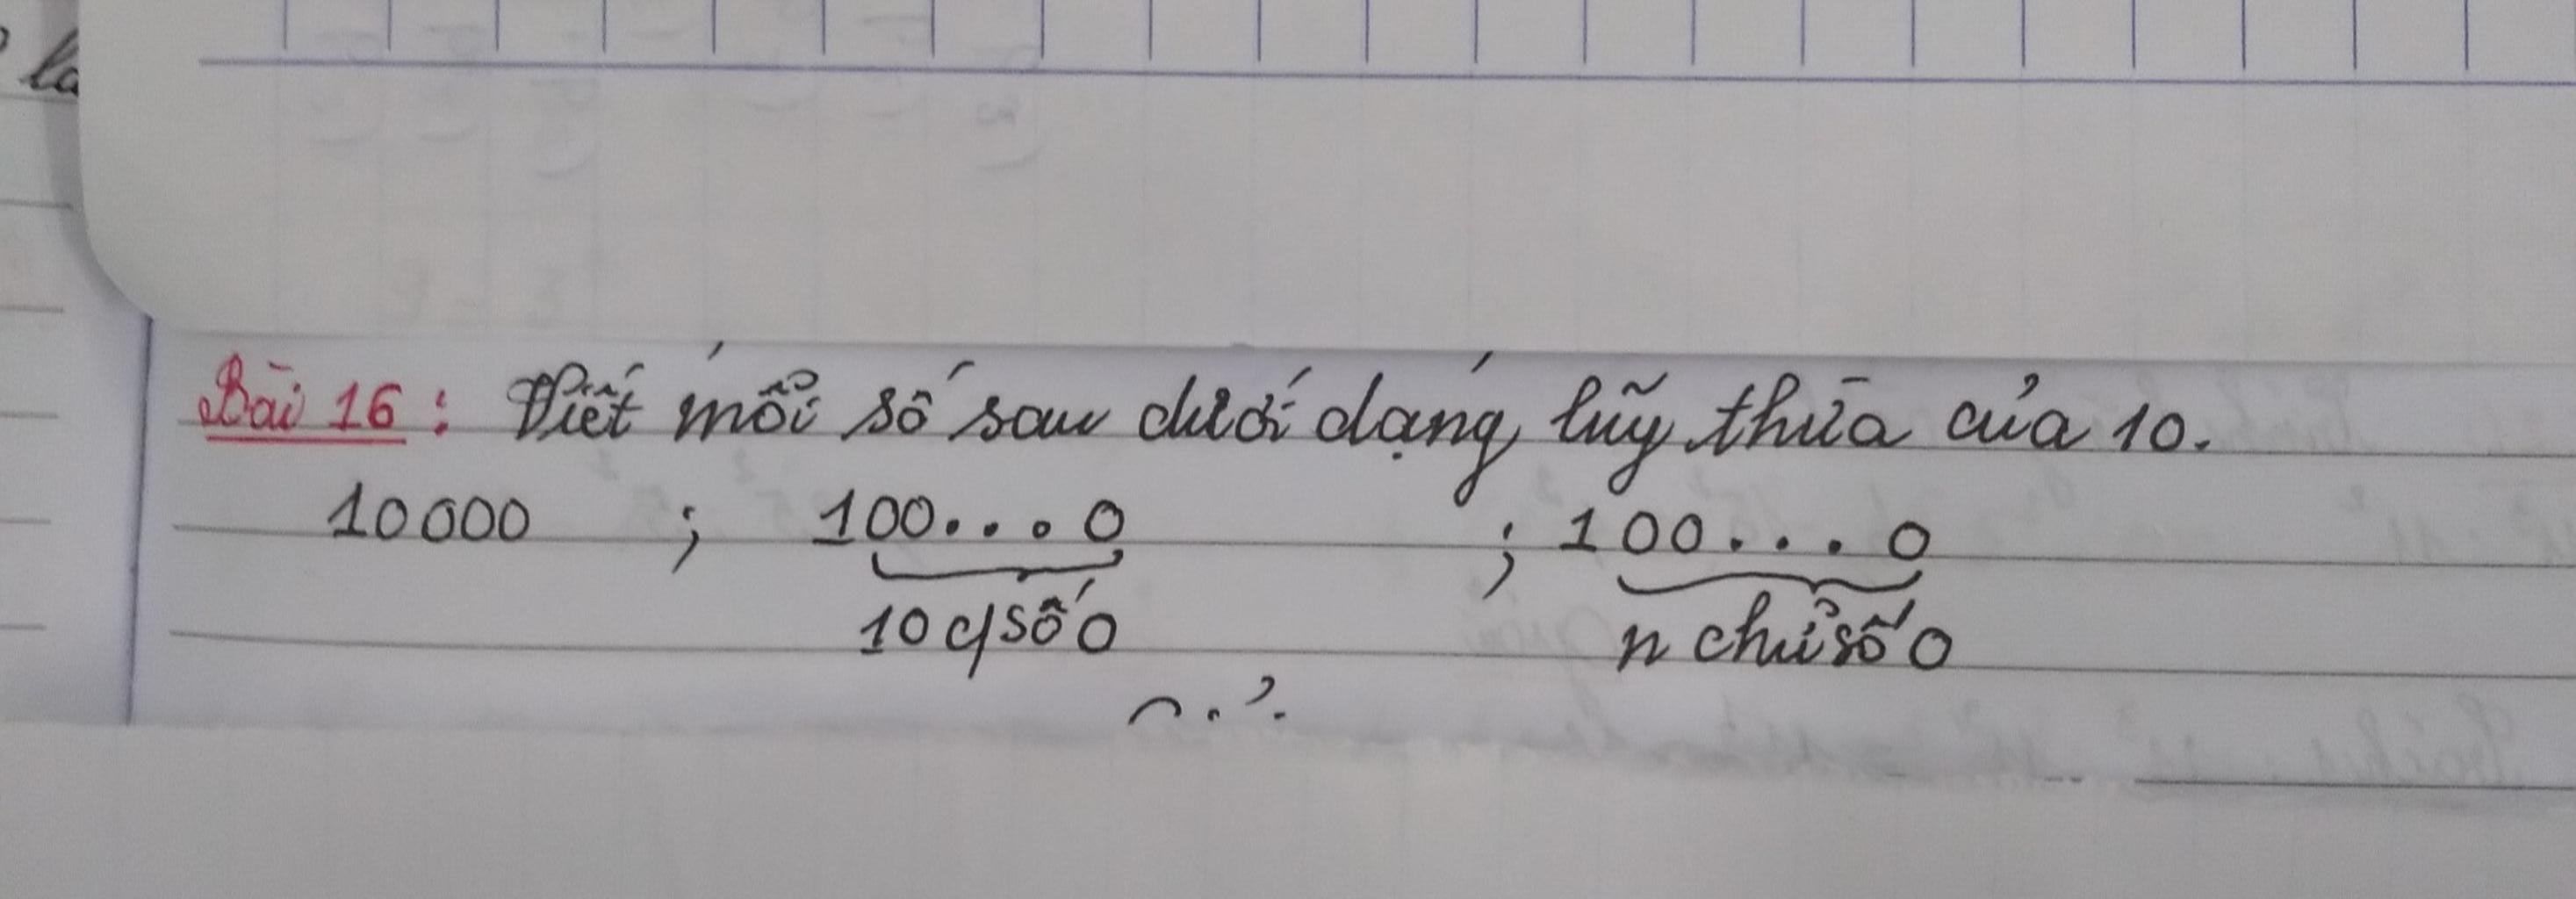 la
Bài 16: Viết mỗi số sau dưới dạng lũy thừa của 10.
10000 ; 100...0 ; 100...0
10 c/số 0 n chữ số 0